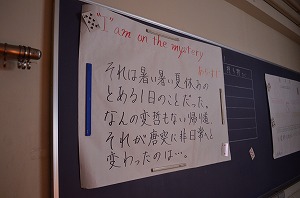 "I" am on the mystery
それは暑い暑い夏休みの
とある1日のことだった。
なんの変哲もない帰り道、
それが唐突に非日常へと
変わったのは…。